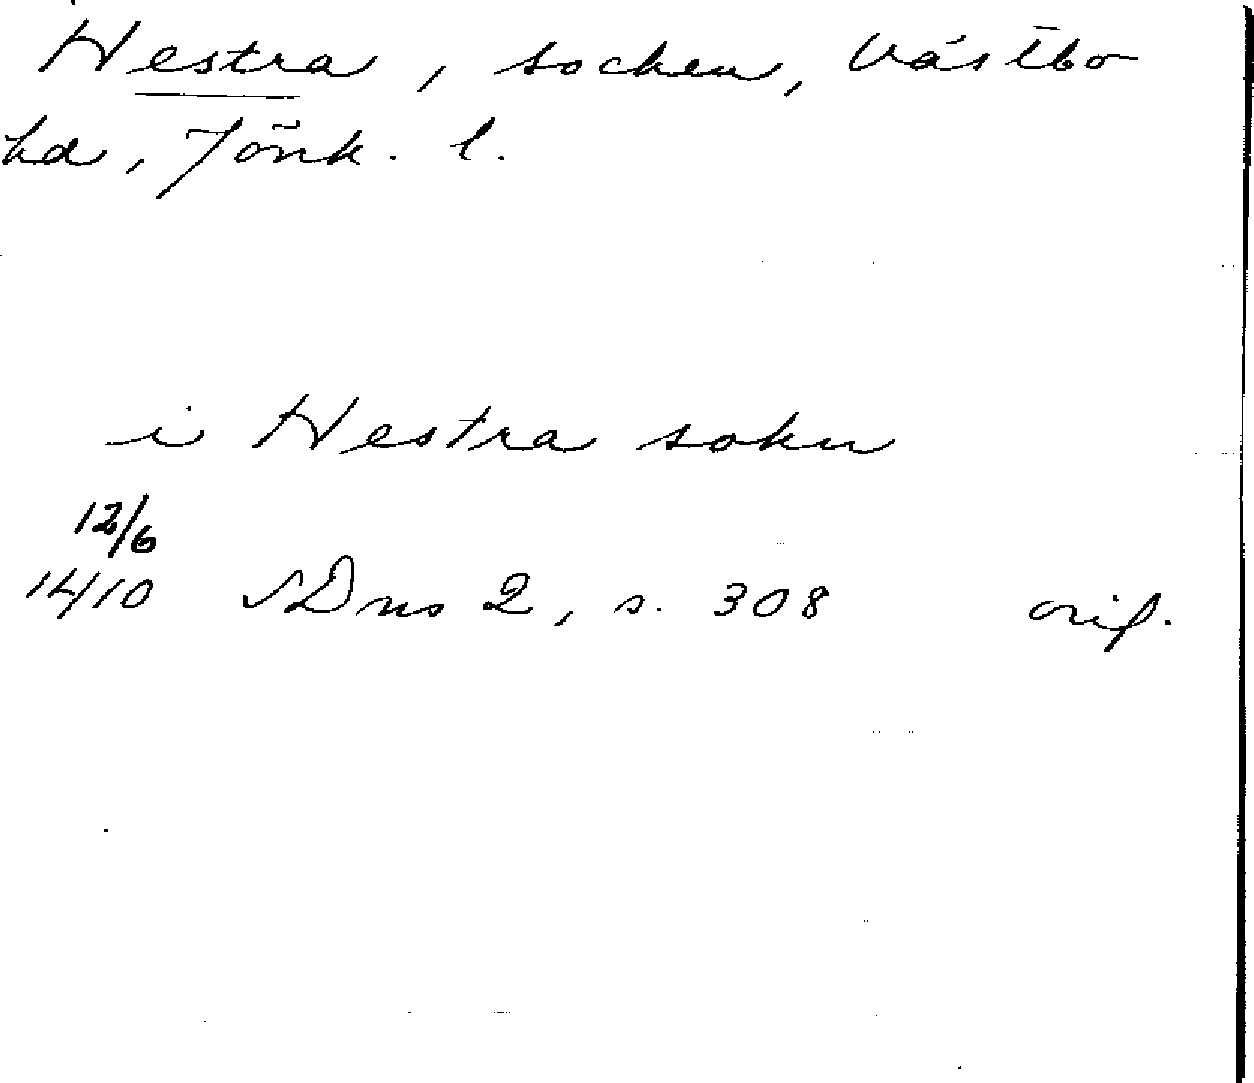 Hestra, socken, Västbo
hd, Jönk. l.
i Hestra sokn
12/6
1410 SDns 2, s. 308 orig.